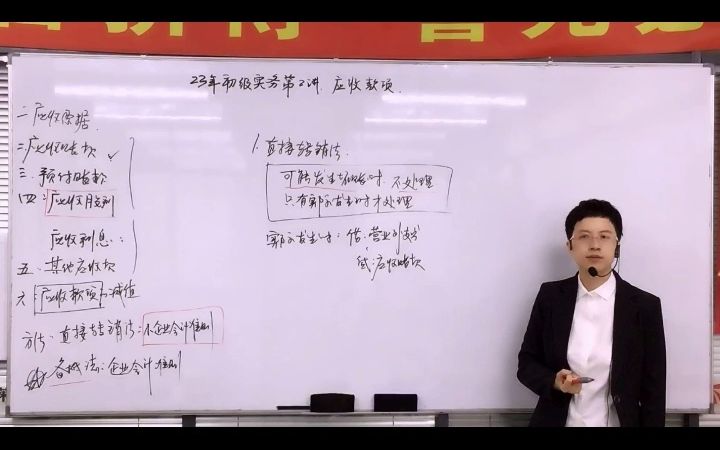 23年初级实务第2讲 应收款项
一应收票据
二应收账款 ✓
三、预付账款
四:应收股利
应收利息:
五、其他应收款
六:应收款项减值
方法:直接转销法:小企业会计准则
备抵法:企业会计准则
1.直接转销法
可能发生坏账时.不处理
只有实际发生时才处理
实际发生时:借:营业外支出
贷:应收账款